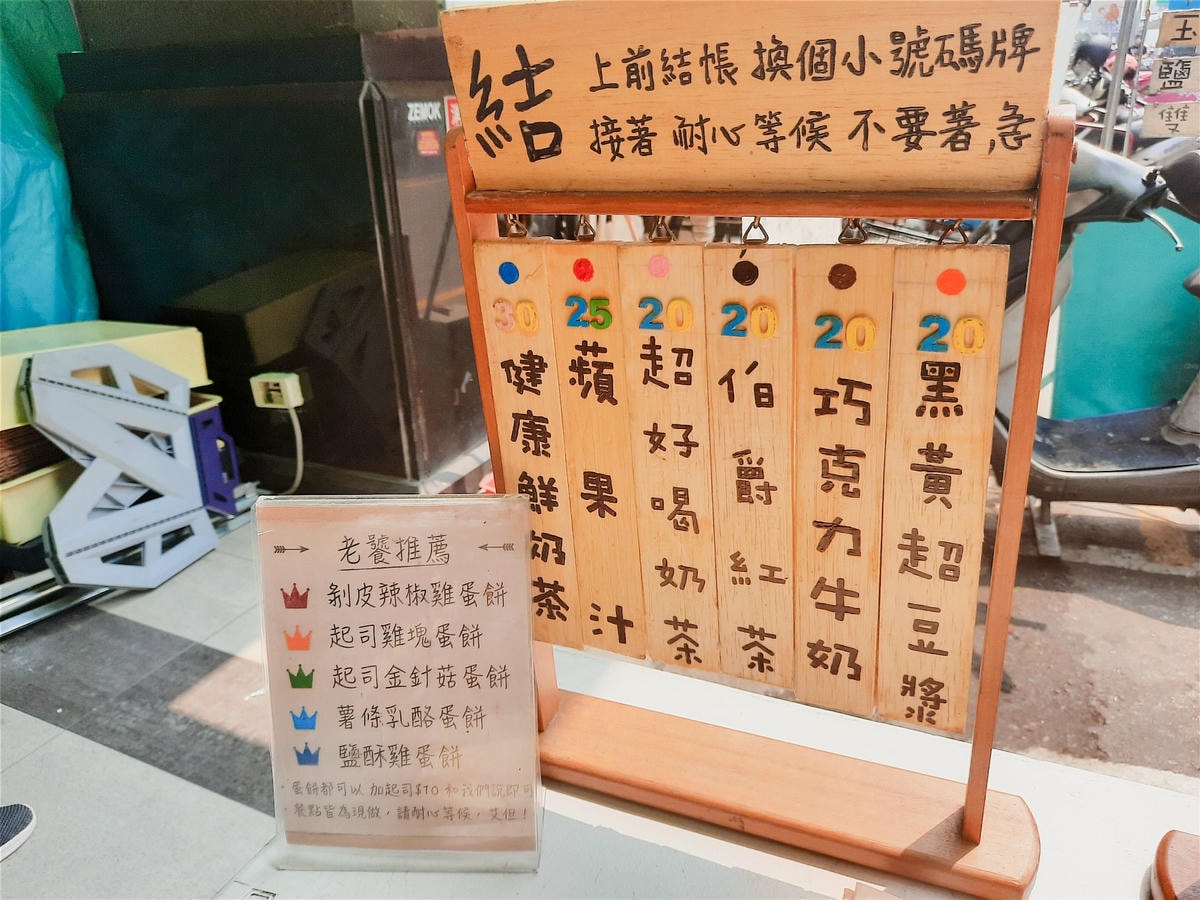 結
上前結帳 換個小號碼牌
接著 耐心等候 不要著急
30
健康鮮奶茶
25
蘋果汁
20
超好喝奶茶
20
伯爵紅茶
20
巧克力牛奶
20
黑黃超豆漿
老饕推薦
剝皮辣椒雞蛋餅
起司雞塊蛋餅
起司金針菇蛋餅
薯條乳酪蛋餅
鹽酥雞蛋餅
蛋餅都可以 加起司$10 和我們說即可
餐點皆為現做，請耐心等候，艾但！
ZEMOK
玉
鹽
雙